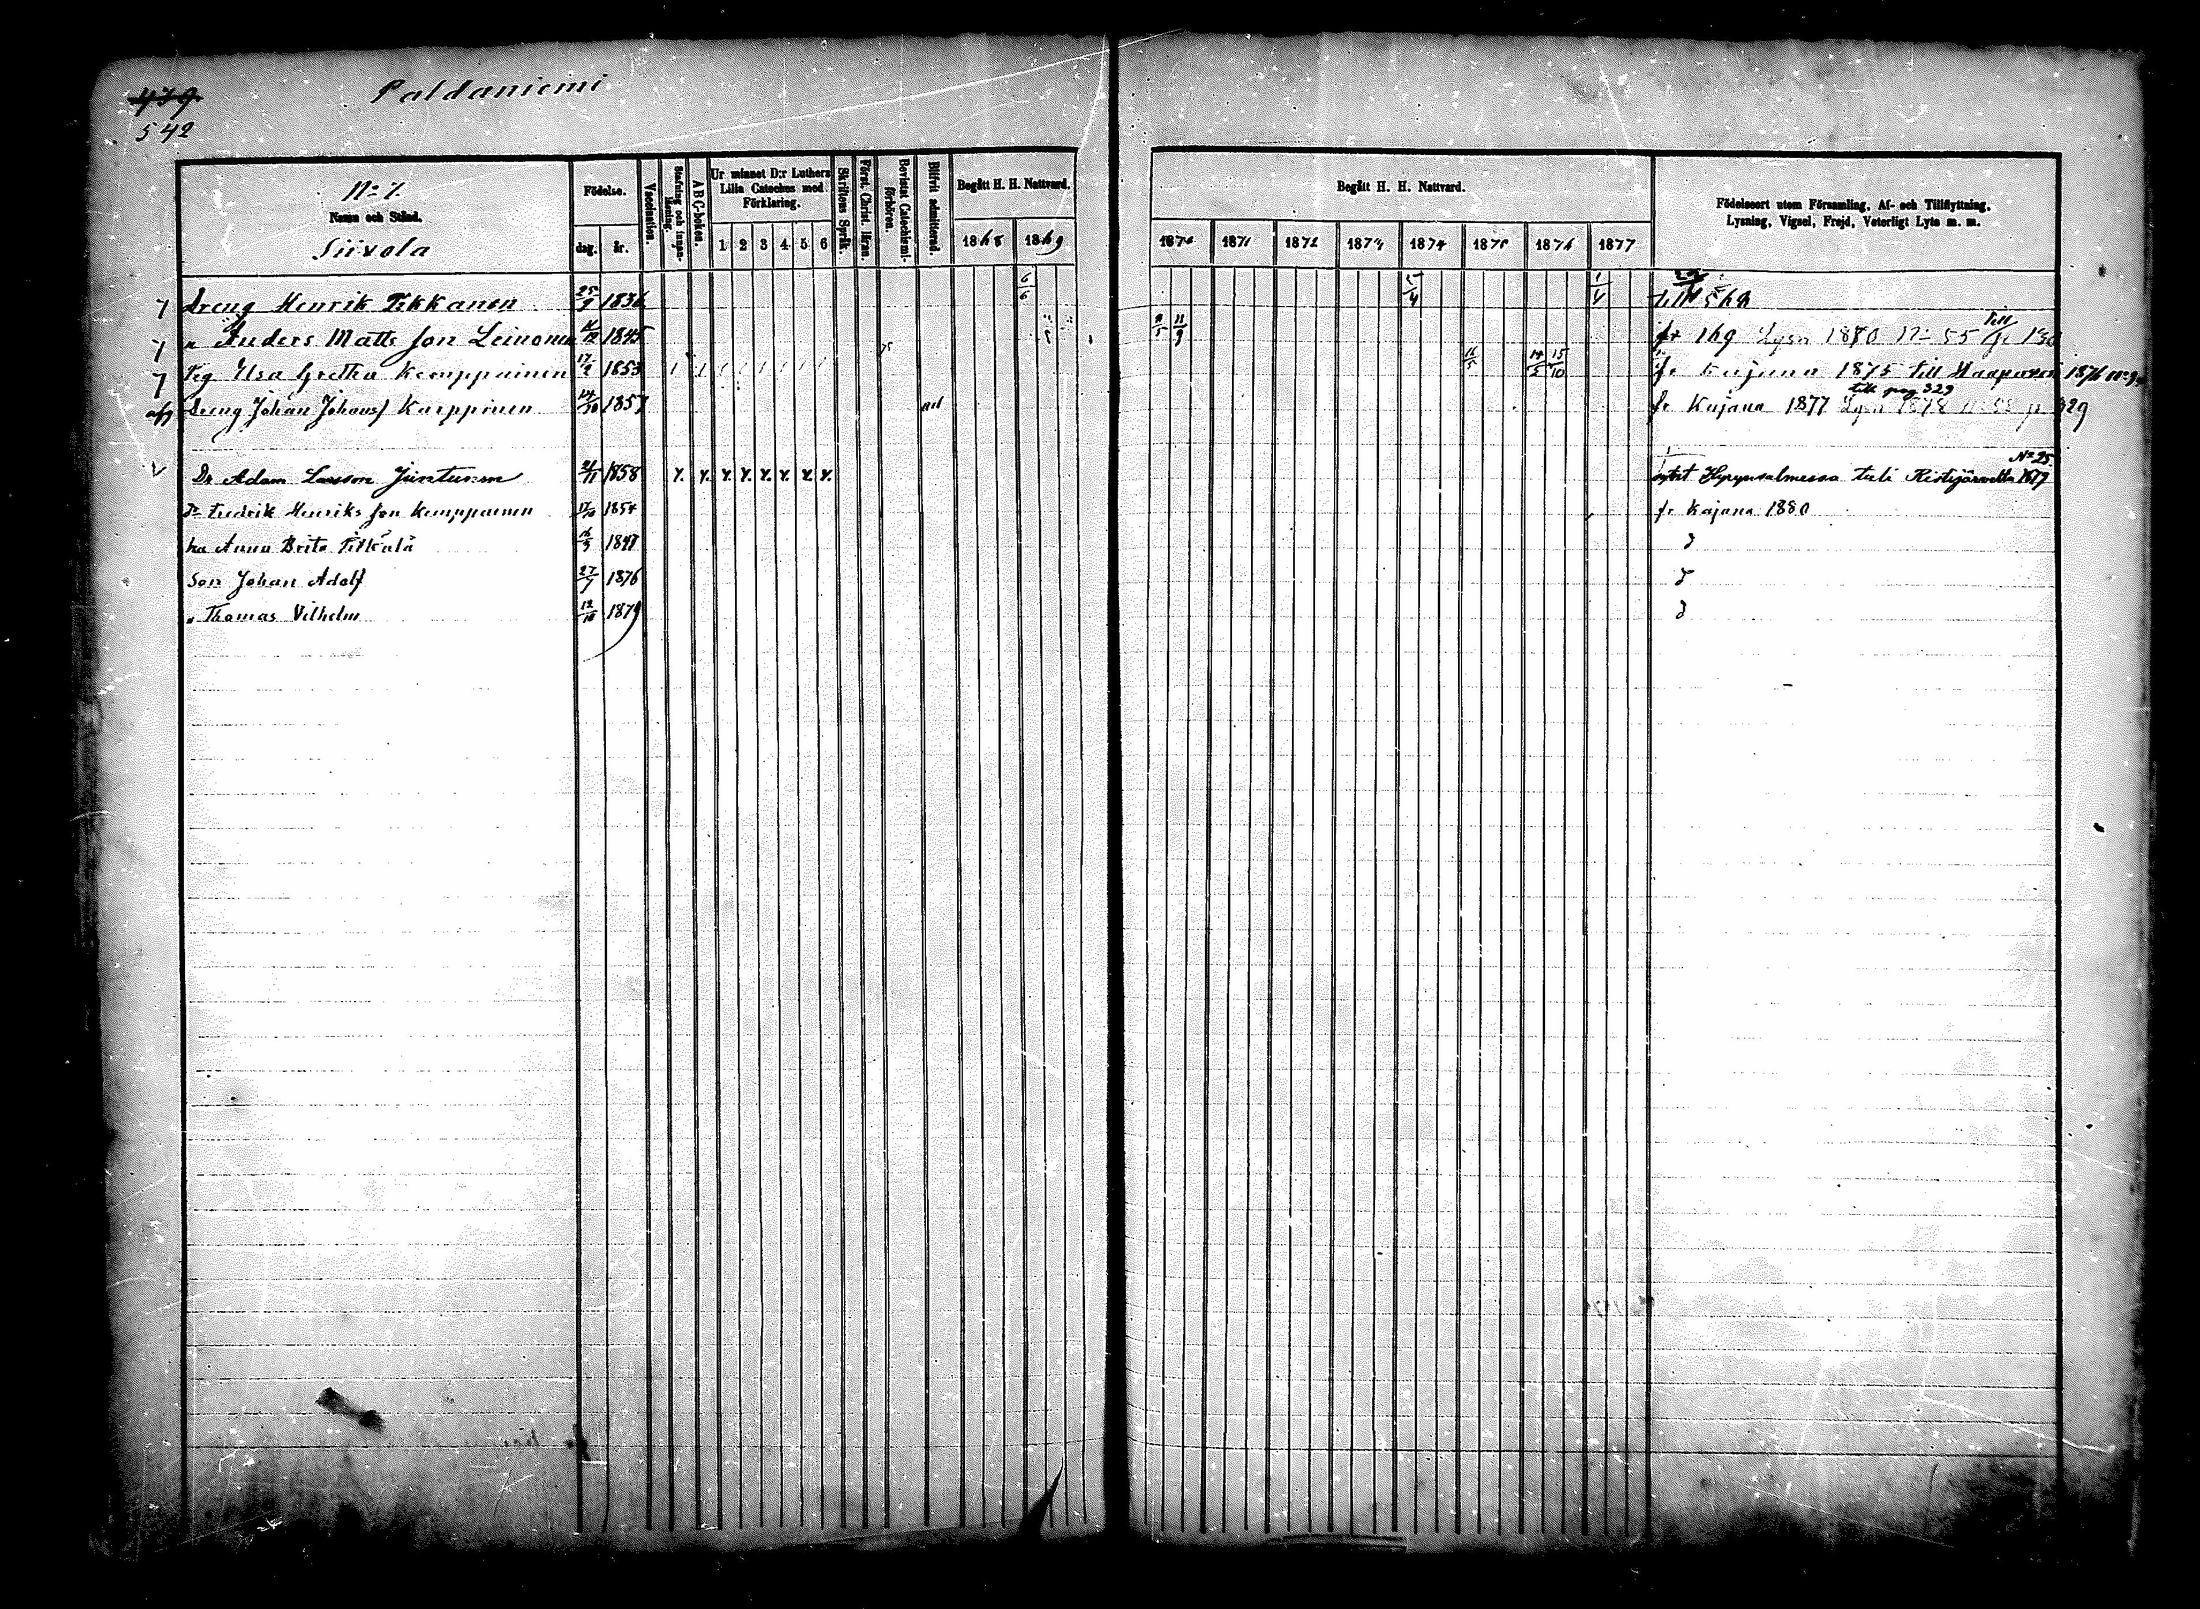 439
542
Paldaniemi
No 7.
Namn och Stånd.
Siivola
Födelse.
dag. år.
Vaccination.
Stafning och innanläsning.
A B C-boken.
Ur minnet D:r Luthers Lilla Cateches med Förklaring.
1 2 3 4 5 6
Skriftens Språk.
Först. Christ. läran.
Bevistat Catechismiförhören.
Blifvit admitterad.
Begått H. H. Nattvard.
1868 1869
Begått H. H. Nattvard.
1870 1871 1872 1873 1874 1875 1876 1877
Födelseort utom Församling, Af- och Tillflyttning, Lysning, Vigsel, Frejd, Veterligt Lyte m. m.
7 Dreng Henrik Tikkanen 25/9 1836 6/6 till 569
7 " Anders Matts son Leinonen 1845 11/9 fr 169 Lysn 1880 No 55 Till p 130
7 Pig Elsa Gretha Kemppainen 17/2 1853 14/5 15/10 fr Kajana 1875 till 1876
Dreng Johan Johansf Karppinen 1857 ad fr Kajana 1877 Lysn 1878 p 329
till pag 329
v Dr Adam Larsson Juntunen 1858 x. x. x. x. x. x. x. x.
No 25
Hyrynsalmessa tuli Kistijärveltä
Dr Fredrik Henriks son Kemppainen 1854 fr Kajana 1880
hu Anna Brita 1847 d
Son Johan Adolf 27/7 1876 d
" Thomas Vilhelm 12/10 1879 d